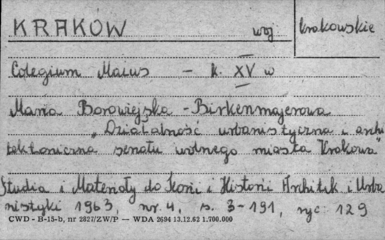 KRAKOW woj. krakowskie
Colegium Maius - k. XV w
Maria Borowiejska - Birkenmajerowa
"Działalność urbanistyczna i archi
tektoniczna senatu wolnego miasta Krakowa"
Studia i Materiały do Teorii i Historii Architek i Urba
nistyki 1963, nr. 4, s. 3-191, ryc 129
CWD - B-15-b, nr 2827/ZW/P — WDA 2694 13.12.62 1.700.000